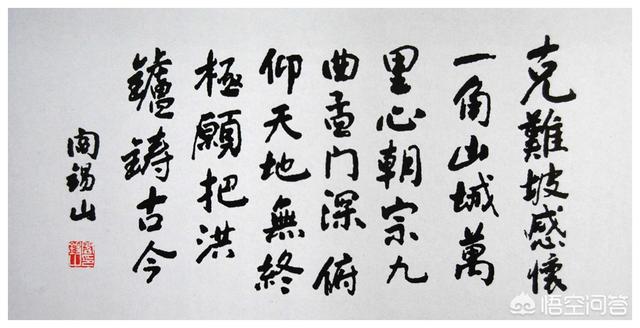 克難坡感懷
一角山城萬
里心朝宗九
曲孟门深俯
仰天地無終
極願把洪
鑪鑄古今
閻錫山
悟空问答